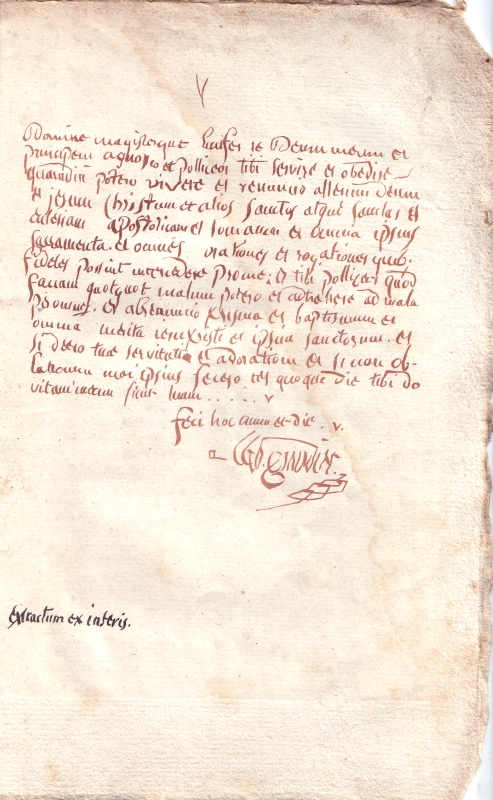 Domine magisterque lucifer te Deum meum et
principem agnosco et polliceor tibi servire et obedire
quamdiu potero vivere et renuncio alterium Deum
et jesum Christum et alios sanctos atque sanctas et
ecclesiam apostolicam et romanam et omnia ipsius
sacramenta et omnes orationes et rogationes quib.
fideles possint intercedere pro me; et tibi polliceor quod
faciam quotquot malum potero et adtrahere ad mala
per omnes. et abrenuncio chrisma et baptismum et
omnia merita jesu christi et ipsius sanctorum. et
si deero tuae servitutia et adorationi et si non ob-
lationem mei ipsius fecero, ter quoque die tibi do
vitam meam sicut tuam . . . . . v
feci hoc anno et die . v.
extractum ex inferis.